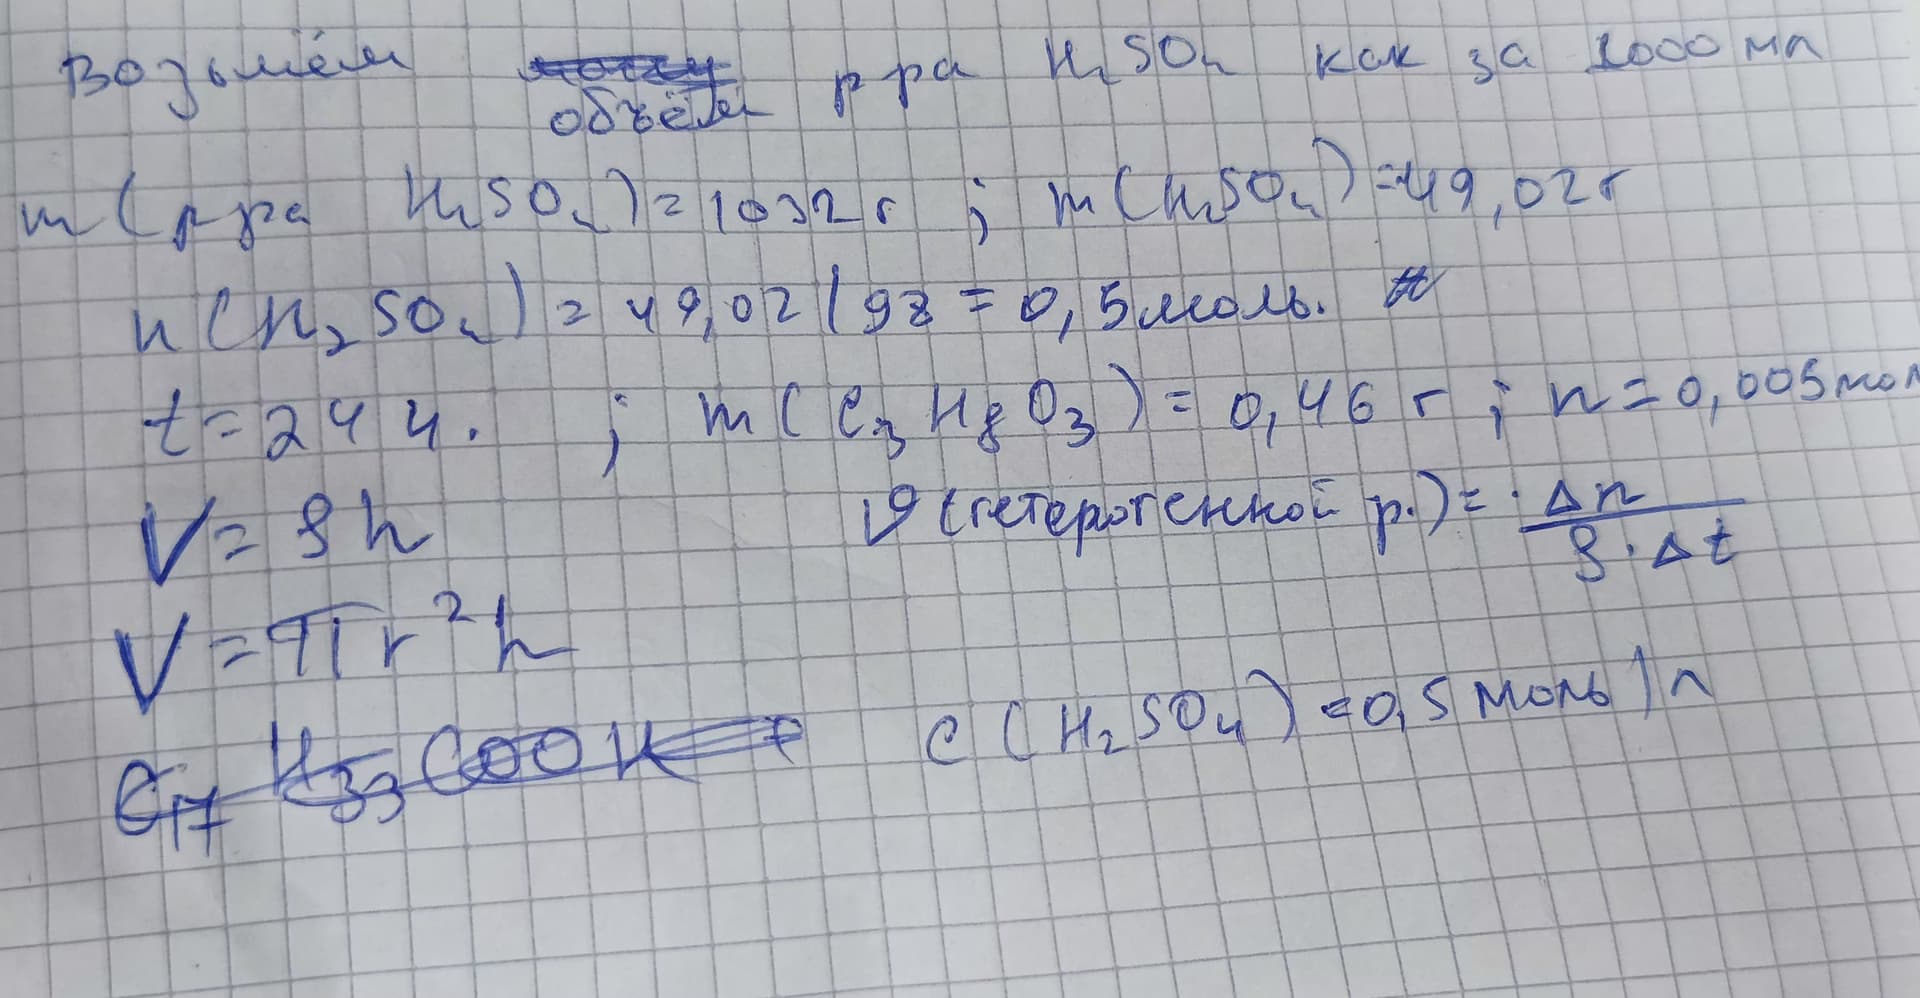 Возьмём объём р ра H₂SO₄ как за 1000 мл
m(р ра H₂SO₄) = 1032 г ; m(H₂SO₄) = 49,02 г
n(H₂SO₄) = 49,02/98 = 0,5 моль.
t = 24 ч. ; m(C₃H₈O₃) = 0,46 г ; n = 0,005 мол
V = Sh
ϑ(гетерогенной р.) = Δn / S · Δt
V = πr²h
C₁₇H₃₃COOH
c(H₂SO₄) = 0,5 моль/л